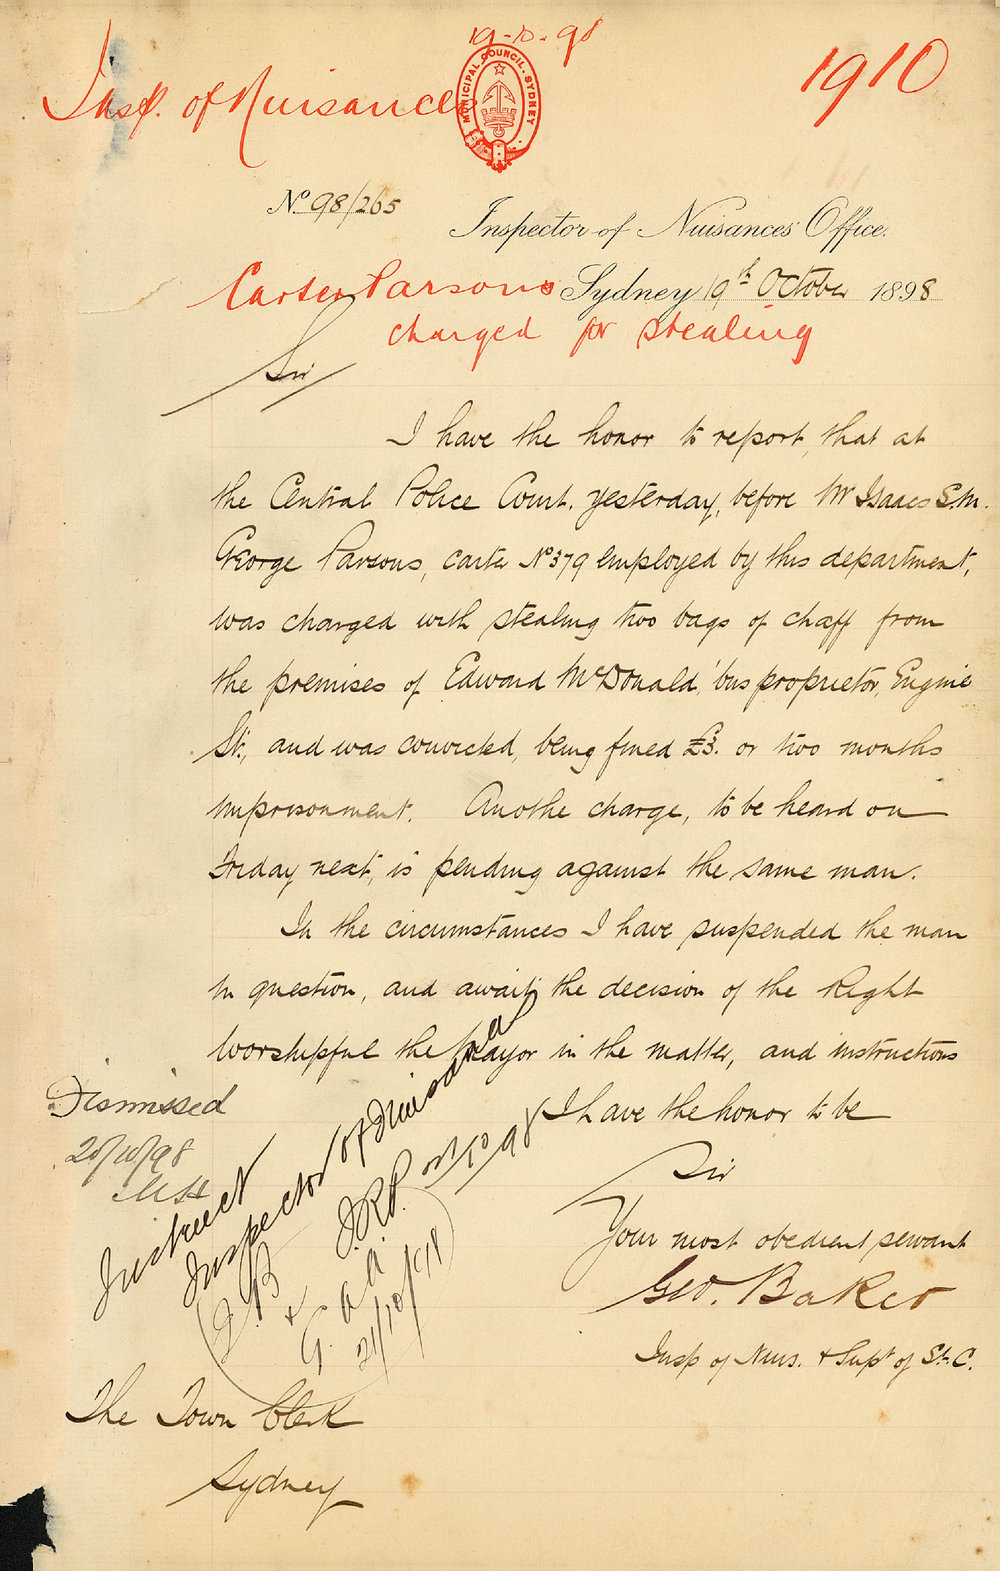 19-10-98
Insp. of Nuisances
1910
MUNICIPAL COUNCIL. SYDNEY
No 98/265
Inspector of Nuisances' Office.
Carter Parsons
Sydney 19th October 1898
charged for stealing
Sir
I have the honor to report, that at
the Central Police Court, yesterday, before Mr Isaacs S.M.
George Parsons, carter No 379 employed by this department,
was charged with stealing two bags of chaff from
the premises of Edward McDonald, 'bus proprietor, Engine
St., and was convicted, being fined £3. or two months
imprisonment. Another charge, to be heard on
Friday next, is pending against the same man.
In the circumstances I have suspended the man
in question, and await the decision of the Right
Worshipful the Mayor in the matter, and instructions
I have the honor to be
Sir
Your most obedient servant
Geo. Baker
Insp of Nuis. & Supt of St. C.
Dismissed
20/10/98
Instruct
Inspector of Nuisances
21/10/98
The Town Clerk
Sydney